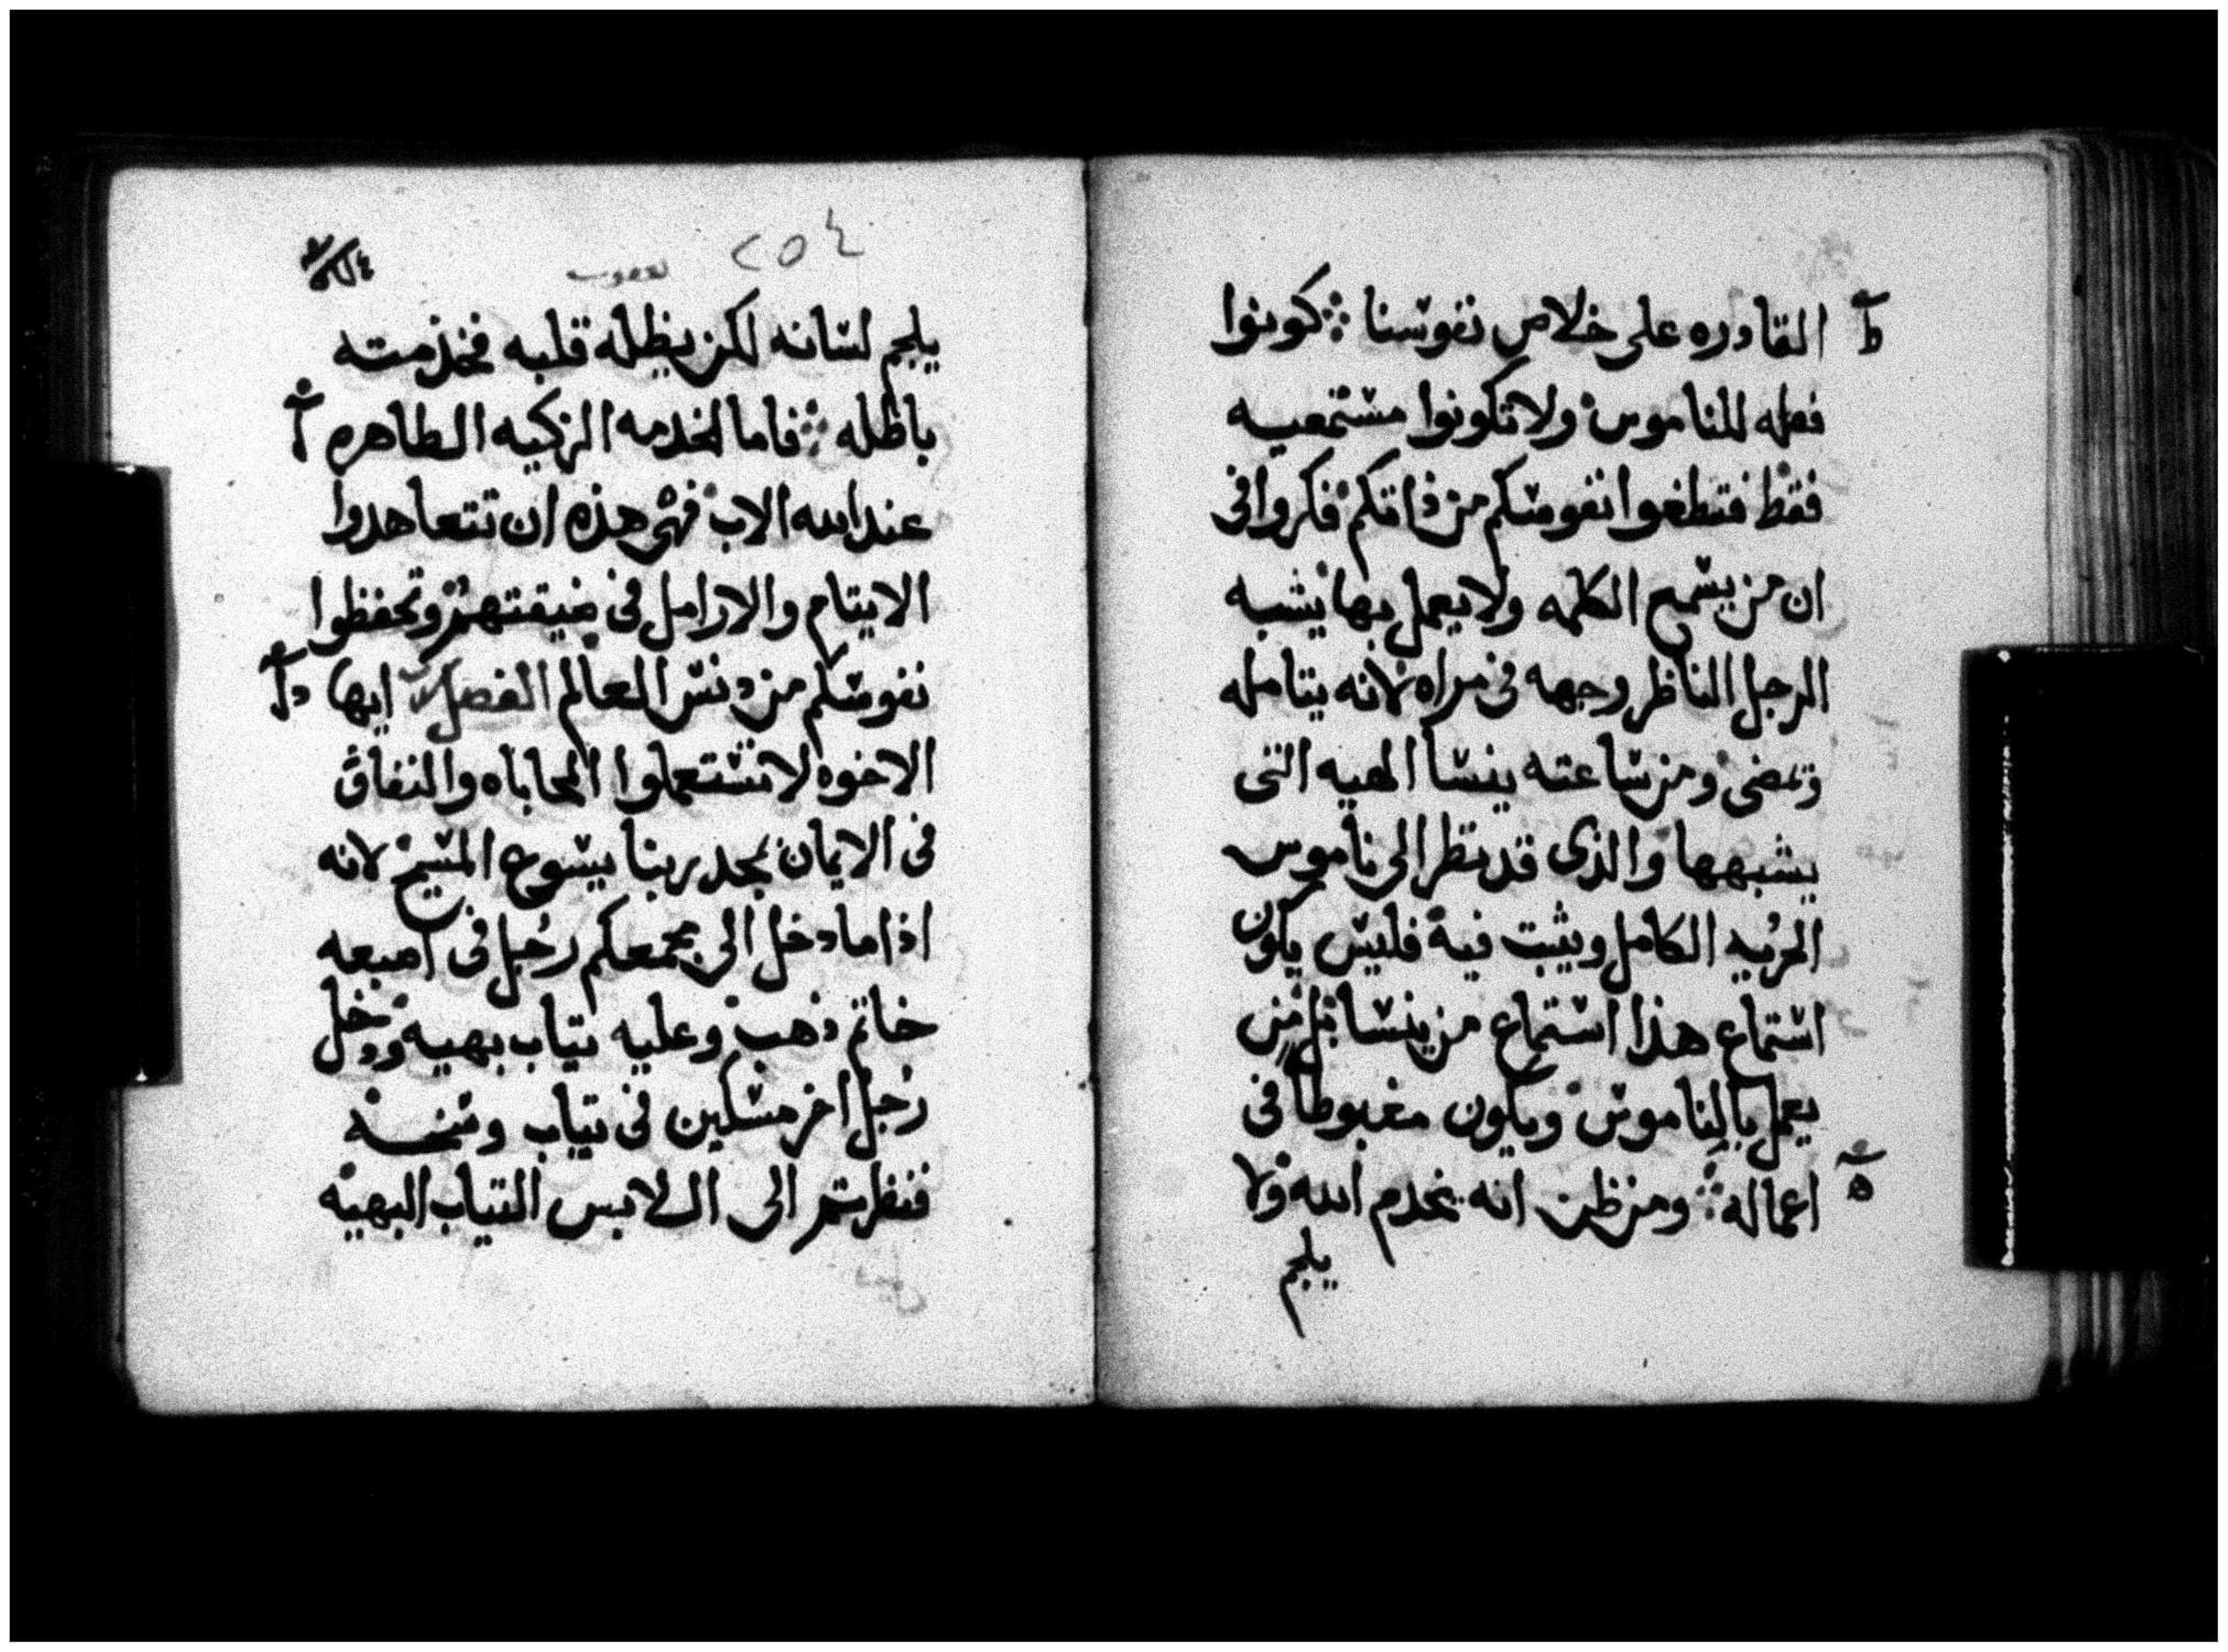 القادره على خلاص نفوسنا ܀ كونوا
فعله للناموس ولا تكونوا مستمعيه
فقط فتطغوا نفوسكم من ذاتكم فكروا فى
ان من يسمع الكلمه ولا يعمل بها يشبه
الرجل الناظر وجهه فى مراه لانه يتامله
وتمضى ومن ساعته ينسا الهيه التى
يشبهها والذى قد نظر الى ناموس
الحريه الكامل ويثبت فيه فليس يكون
استماع هذا استماع من ينسا بل من
يعمل بالناموس ويكون مغبوطا فى
اعماله ܀ ومن ظن انه يخدم الله ولا
يلجم
٢٥٤
يعقوب
يلجم لسانه لكن يظله قلبه فخدمته
باطله ܀ فاما الخدمه الزكيه الطاهره
عند الله الاب فهى هذه ان تتعاهدوا
الايتام والارامل فى ضيقتهم وتحفظوا
نفوسكم من دنس العالم الفصل ايها
الاخوه لا تستعملوا المحاباه والنفاق
فى الايمان بمجد ربنا يسوع المسيح لانه
اذا ما دخل الى مجمعكم رجل فى اصبعه
خاتم ذهب وعليه تياب بهيه ودخل
رجل اخر مسكين فى تياب وسخه
فنظرتم الى اللابس التياب البهيه